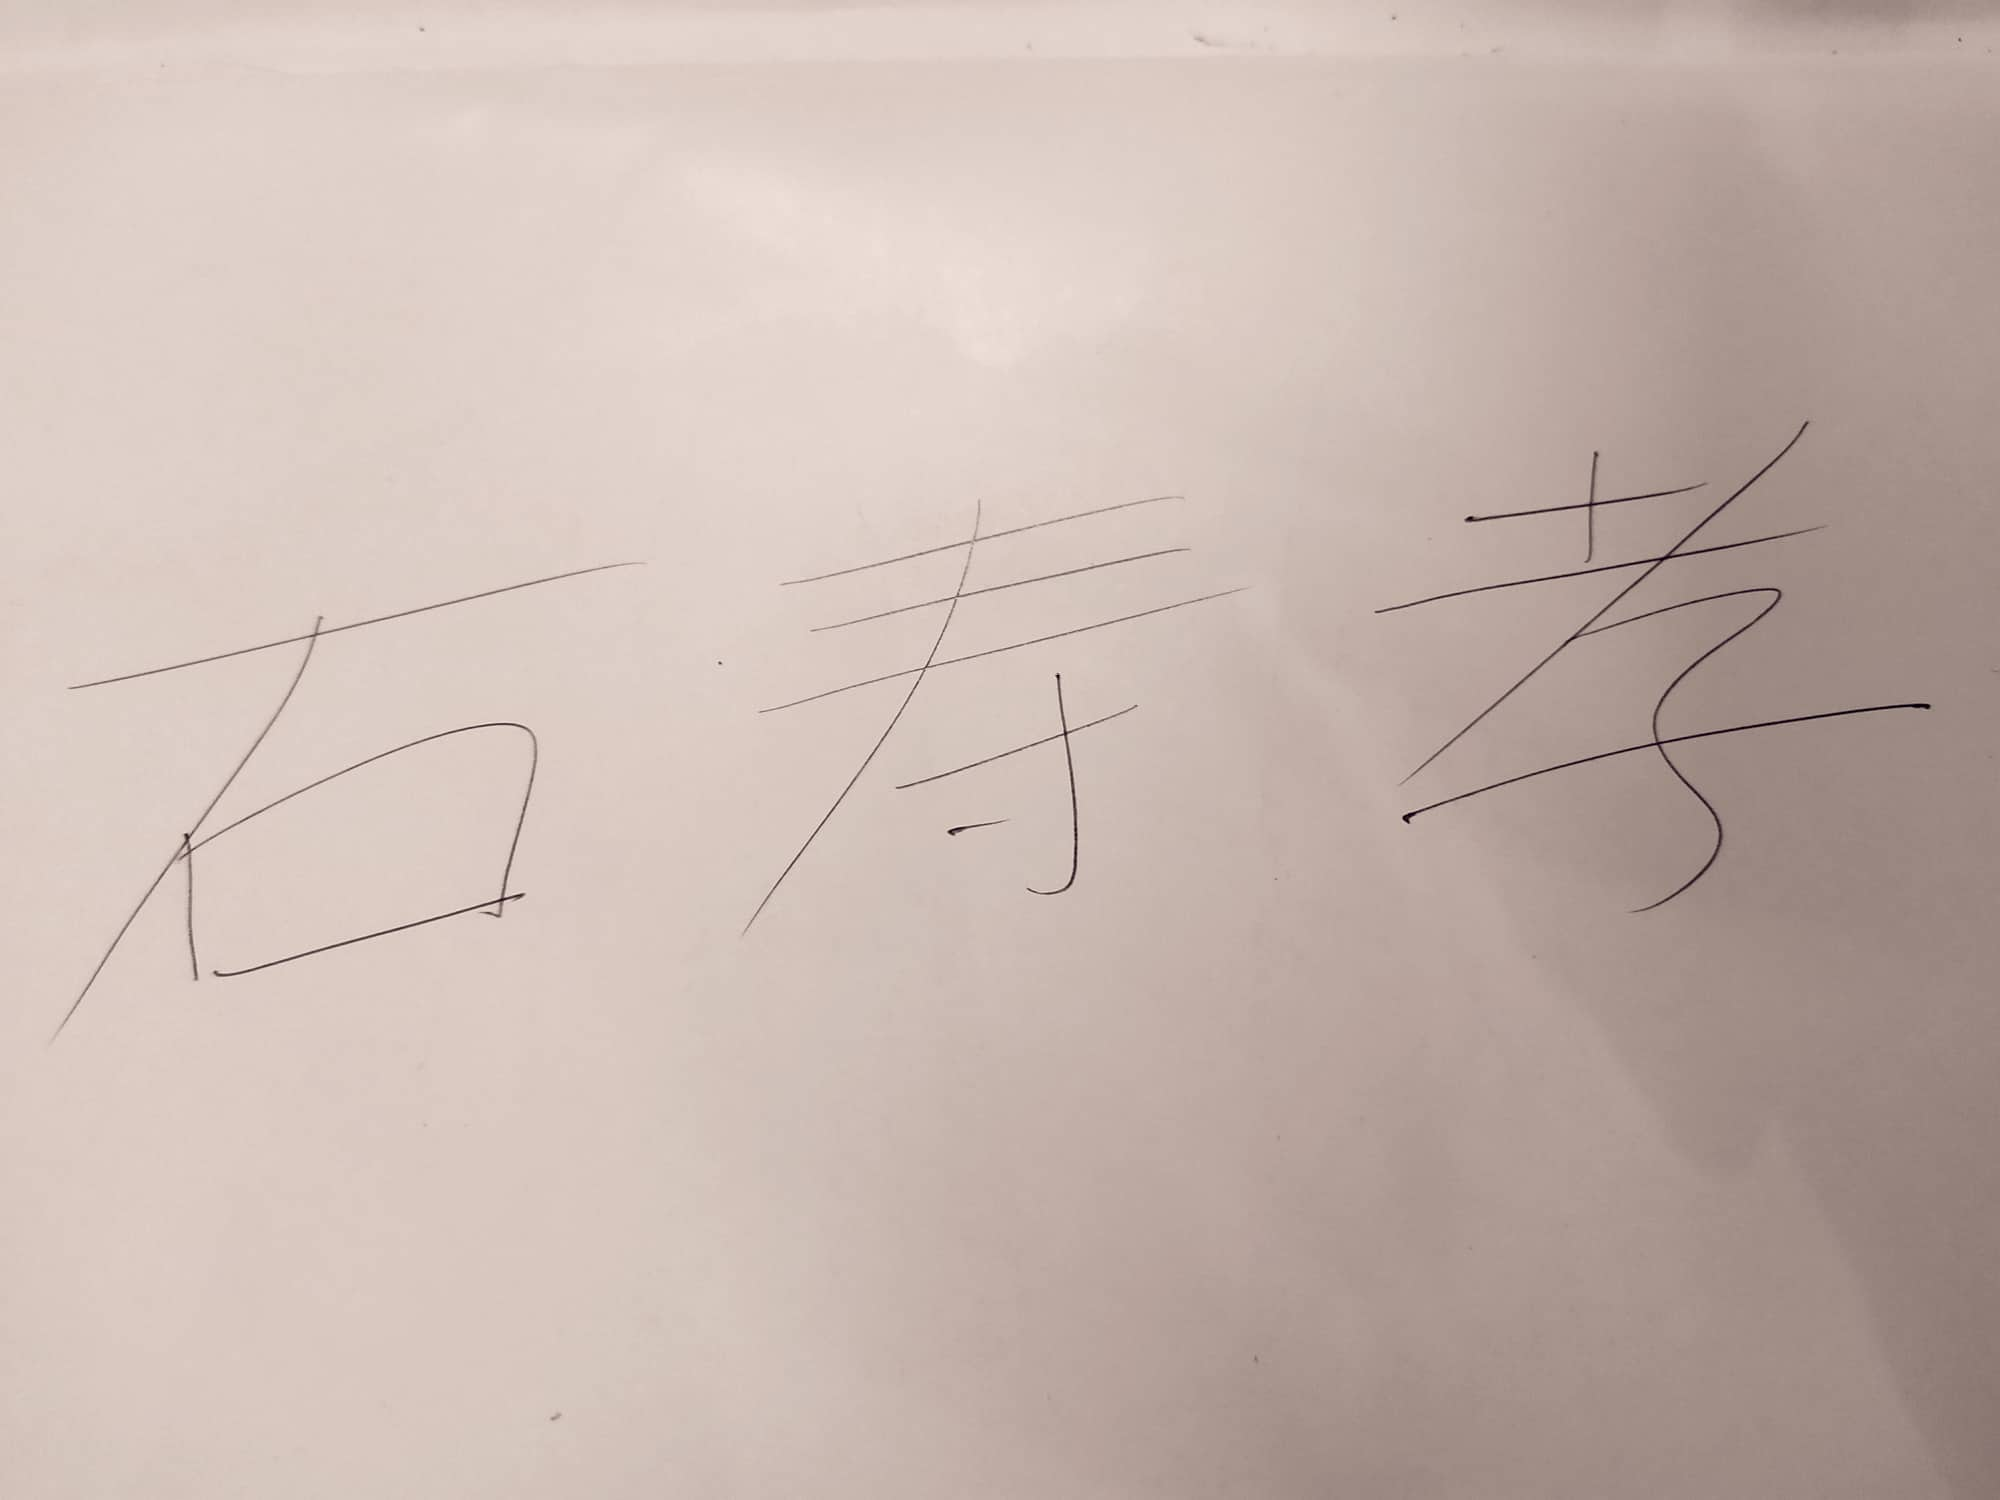 石寿孝